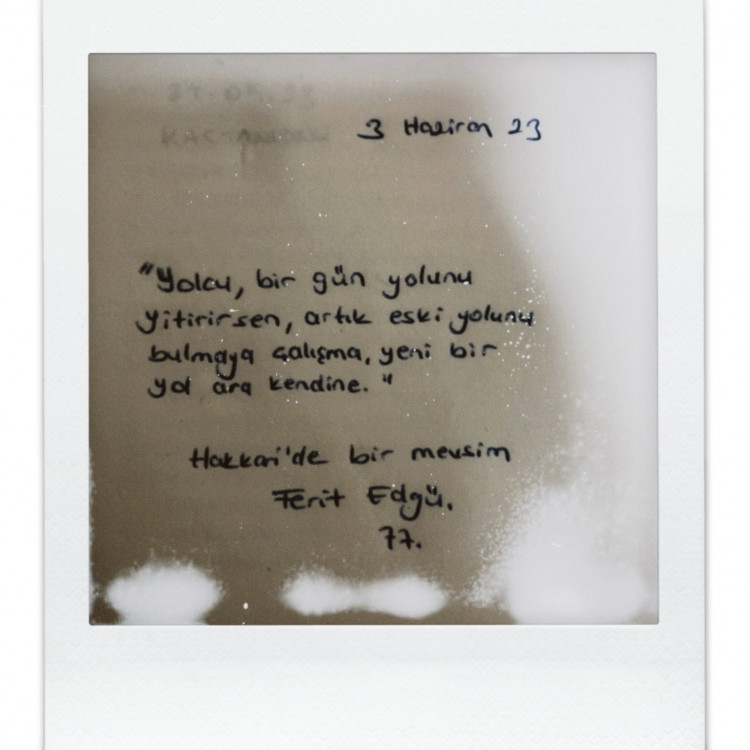 3 Haziran 23
"Yolcu, bir gün yolunu
yitirirsen, artık eski yolunu
bulmaya çalışma, yeni bir
yol ara kendine."
Hakkari'de bir mevsim
Ferit Edgü.
77.